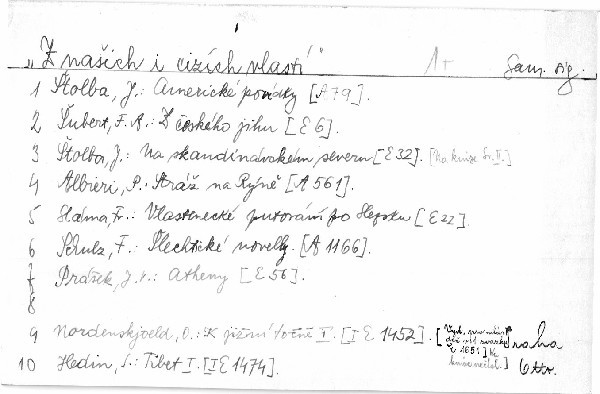 „Z našich i cizích vlastí" 1+ Sam. sig.
1 Štolba, J.: Americké povídky [A 79].
2 Šubert, F. A.: Z českého jihu [E 6].
3 Štolba, J.: Na skandinávském severu [E 32]. [Na knize Sv. II.]
4 Albieri, P.: Stráž na Rýně [A 561].
5 Sláma, Fr.: Vlastenecké putování po Slezsku [E 22].
6 Schulz, F.: Šlechtické novelly. [A 1166].
7 Prášek, J. V.: Atheny [E 56].
8
9 Nordenskjoeld, O.: K jižní točně I. [I E 1452].
Praha
10 Hedin, S.: Tibet I. [I E 1474]. Otto.